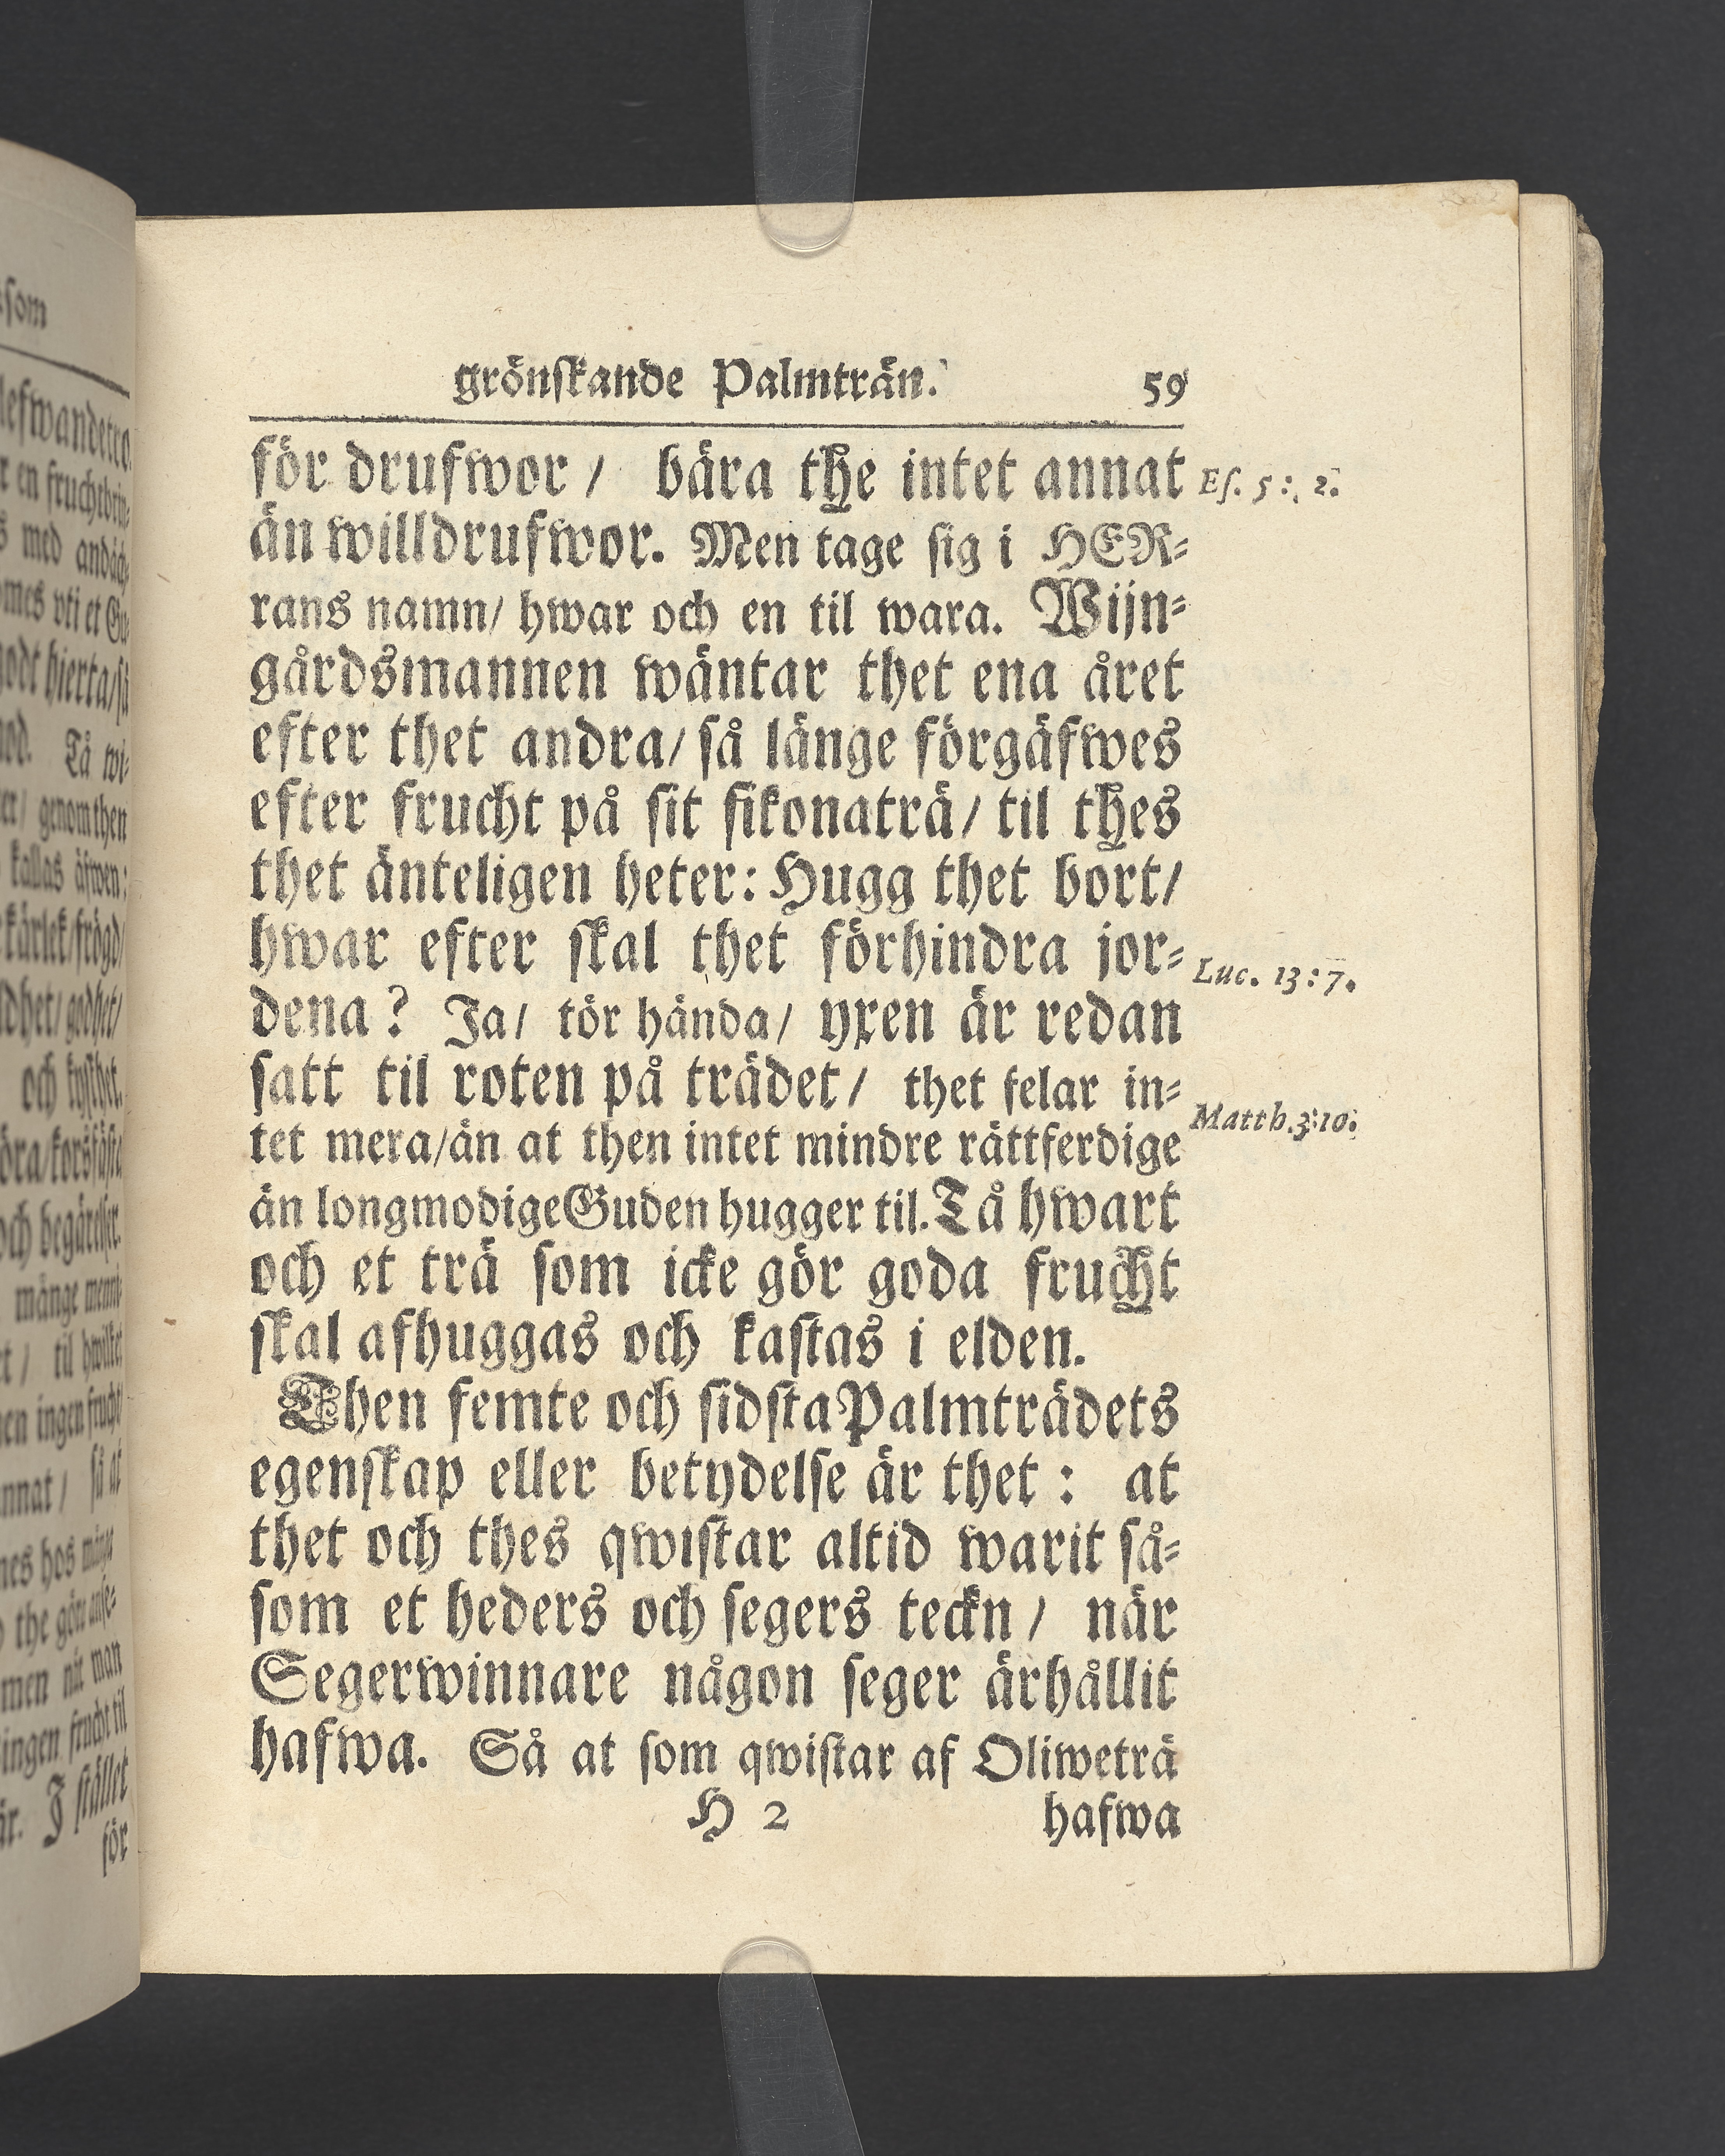 grönskande Palmträn. 59
för drufwor / bära the intet annat
Es. 5:, 2.
än willdrufwor. Men tage sig i HER-
rans namn/ hwar och en til wara. Wijn-
gårdsmannen wäntar thet ena året
efter thet andra/ så länge förgäfwes
efter frucht på sit fikonaträ/ til thes
thet änteligen heter: Hugg thet bort/
hwar efter skal thet förhindra jor-
Luc. 13:7.
dena? Ja/ tör hända/ yxen är redan
satt til roten på trädet/ thet felar in-
Matth.3:10.
tet mera/än at then intet mindre rättferdige
än longmodigeGuden hugger til.Tå hwart
och et trä som icke gör goda frucht
skal afhuggas och kastas i elden.
Then femte och sidsta Palmträdets
egenskap eller betydelse är thet : at
thet och thes qwistar altid warit så-
som et heders och segers teckn / när
Segerwinnare någon seger ärhållit
hafwa. Så at som qwistar af Oliweträ
H 2 hafwa
som
genom then
och kyshet.
Tå wi-
ingen frucht til
J stället
för